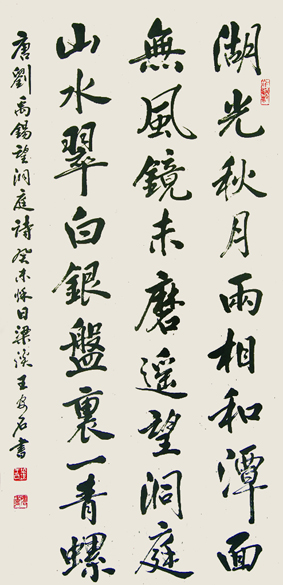 湖光秋月兩相和潭面
無風鏡未磨遥望洞庭
山水翠白銀盤裏一青螺
唐劉禹錫望洞庭詩癸未秋日梁溪王安石書